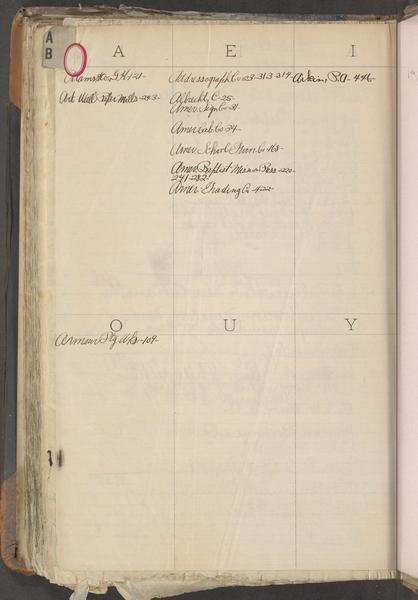 A
B
A E I
Adams & Co G H-121-
Art Wall Paper Mills-243-
Addressograph Co-23-313-314-
Albrecht, C-25-
Amer. Sign Co-31-
Amer. Cab. Co-34-
Amer. School Furn. Co-168-
Amer. Baptist Mission Press-220-
241-282-
Amer. Trading Co-422-
Aitkin, R.A-446-
O U Y
Armour Pkg Wks-109-